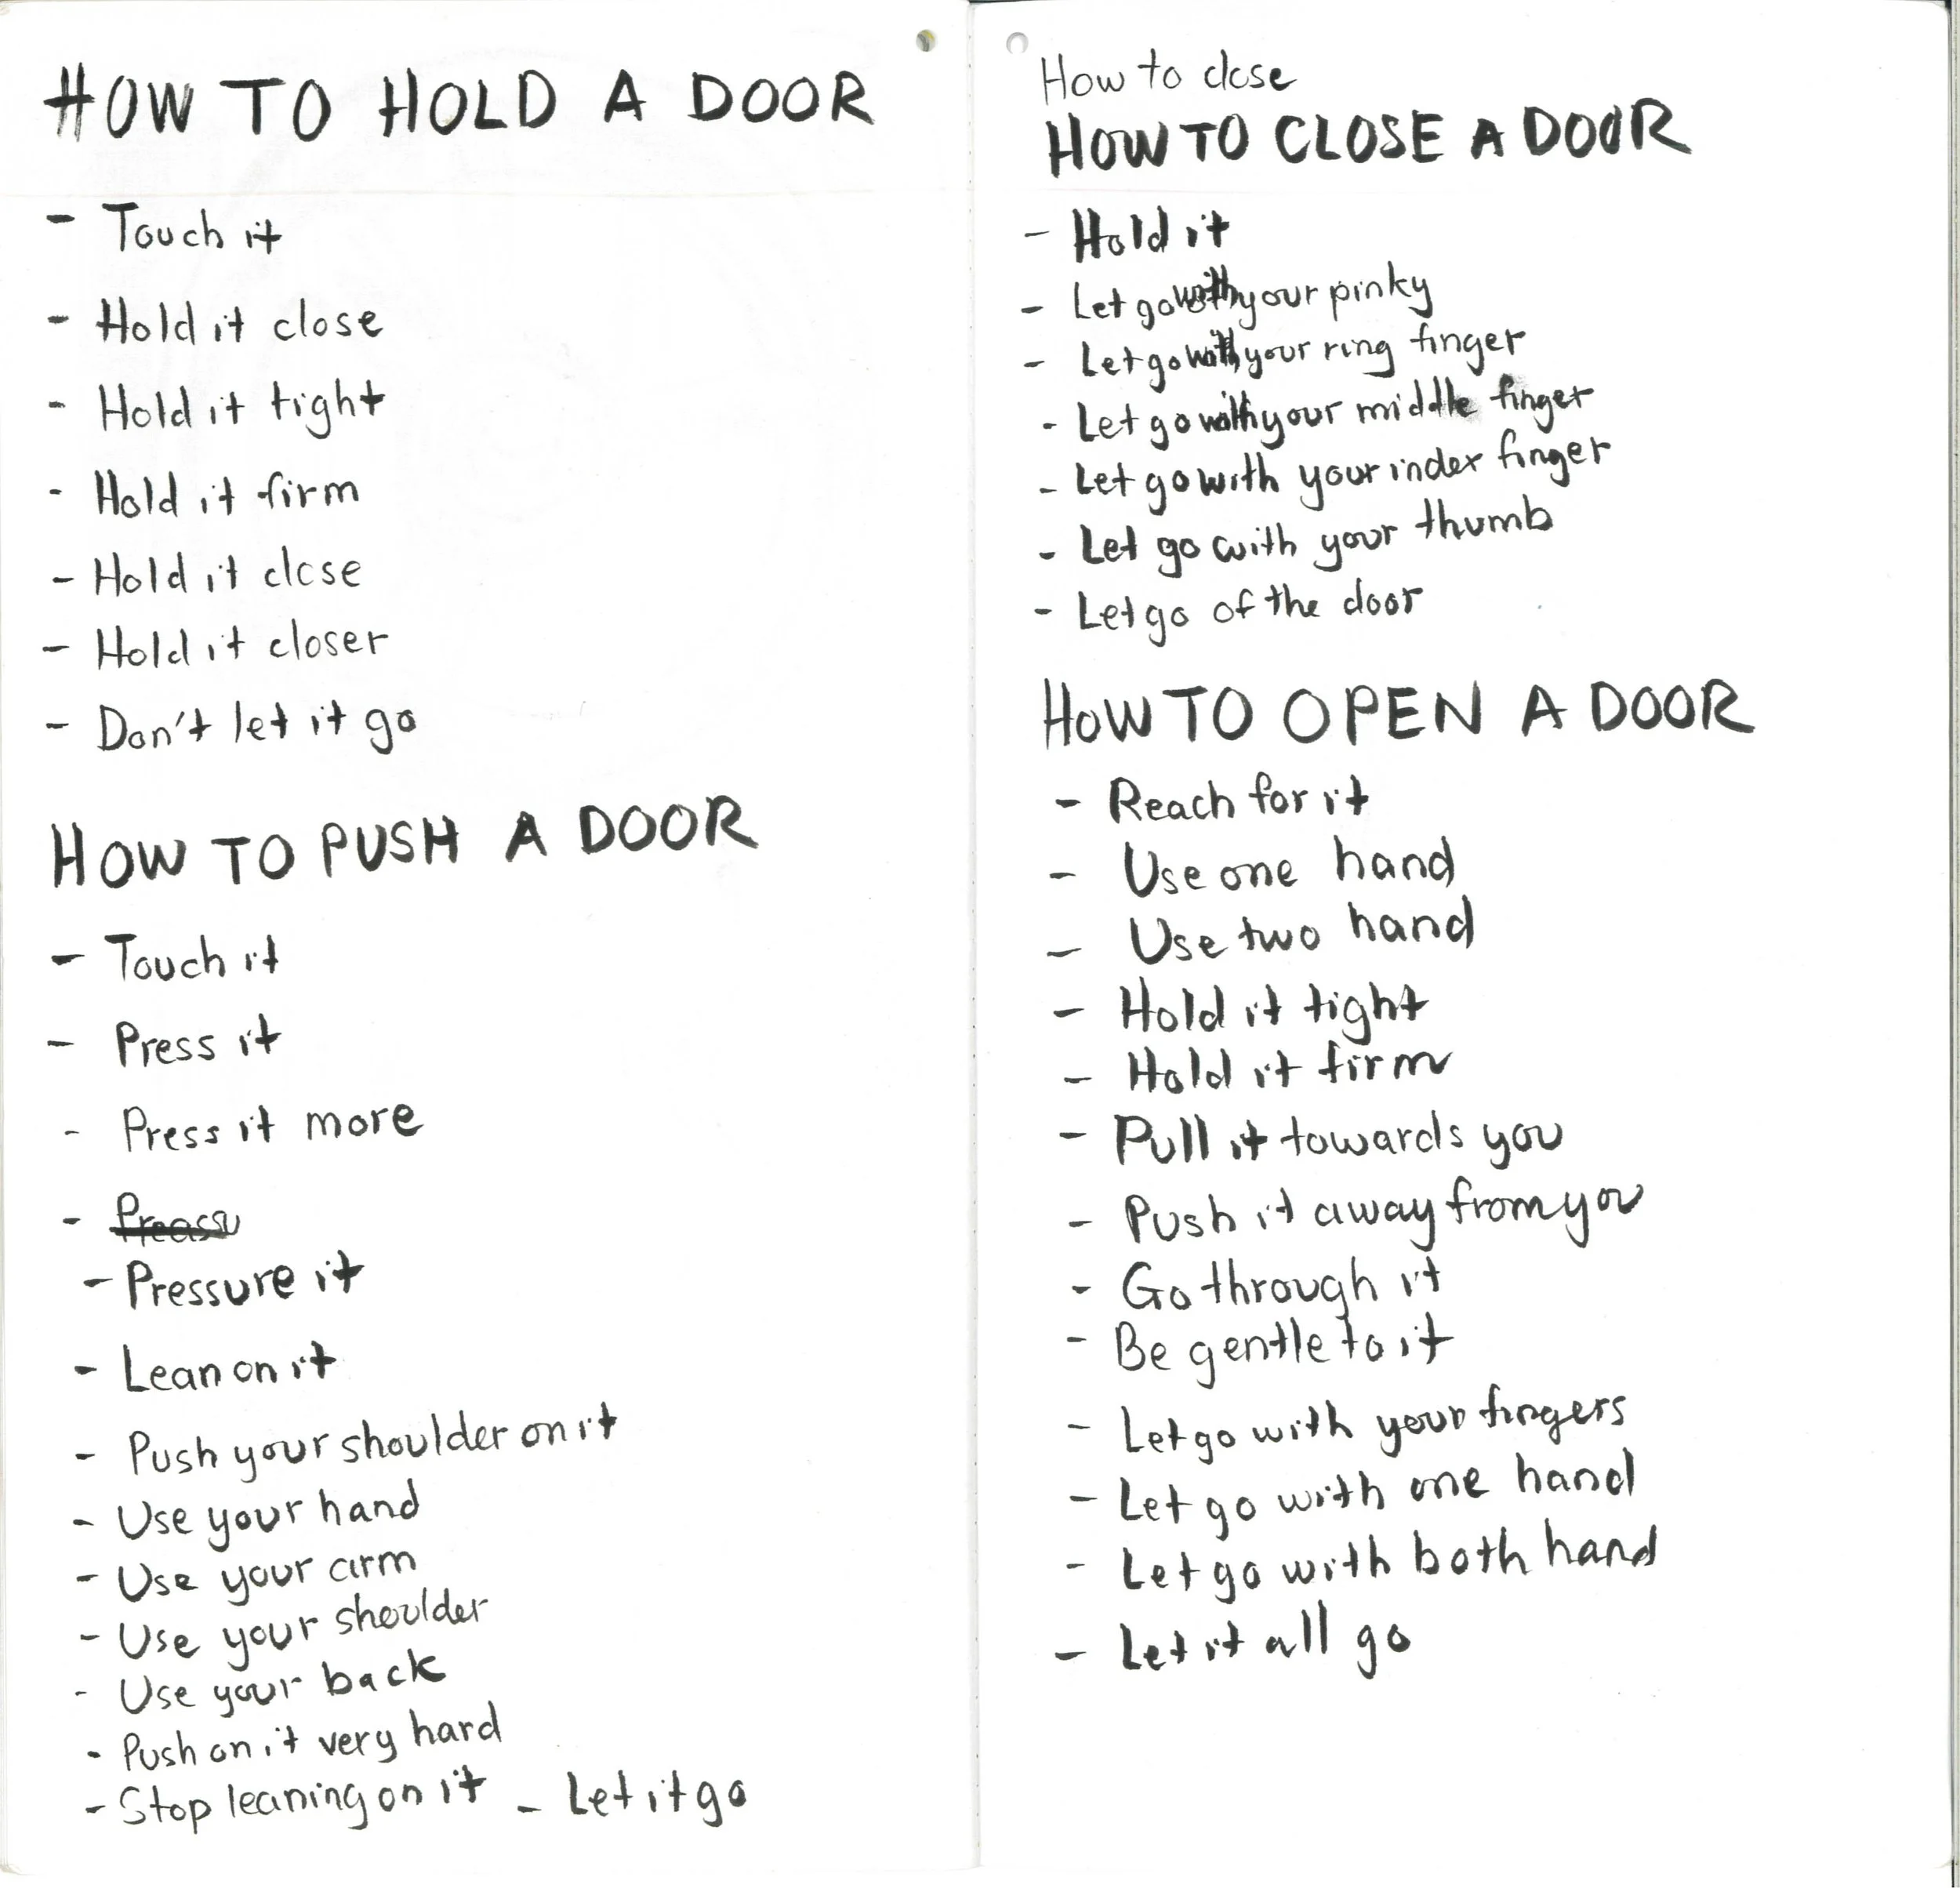 HOW TO HOLD A DOOR
- Touch it
- Hold it close
- Hold it tight
- Hold it firm
- Hold it close
- Hold it closer
- Don't let it go
HOW TO PUSH A DOOR
- Touch it
- Press it
- Press it more
-
- Pressure it
- Lean on it
- Push your shoulder on it
- Use your hand
- Use your arm
- Use your shoulder
- Use your back
- Push on it very hard
- Stop leaning on it - Let it go
How to close
HOW TO CLOSE A DOOR
- Hold it
- Let go with your pinky
- Let go with your ring finger
- Let go with your middle finger
- Let go with your index finger
- Let go with your thumb
- Let go of the door
HOW TO OPEN A DOOR
- Reach for it
- Use one hand
- Use two hand
- Hold it tight
- Hold it firm
- Pull it towards you
- Push it away from you
- Go through it
- Be gentle to it
- Let go with your fingers
- Let go with one hand
- Let go with both hand
- Let it all go